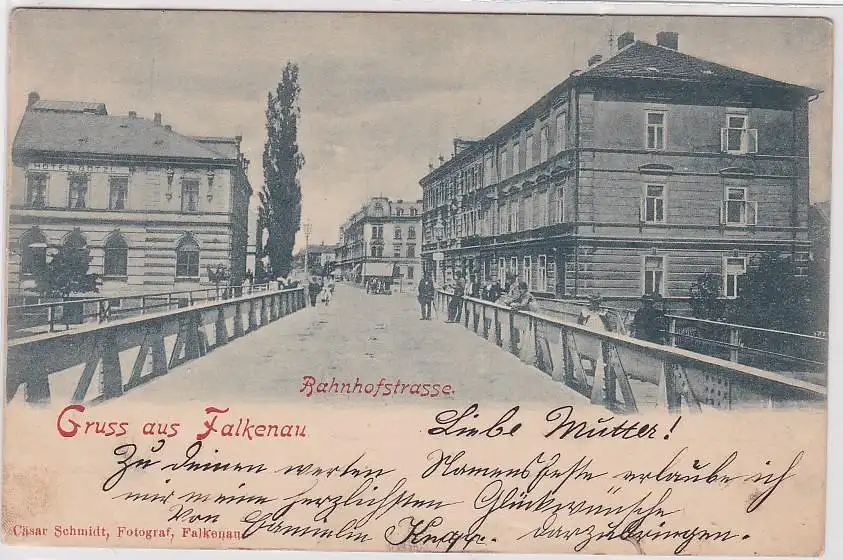 HOTEL
Bahnhofstrasse.
Gruss aus Falkenau.
Liebe Mutter!
Zu Deinen werten Namensfeste erlaube ich
mir meine herzlichsten Glückwünsche
Von Familie darzubringen.
Cäsar Schmidt, Fotograf, Falkenau.